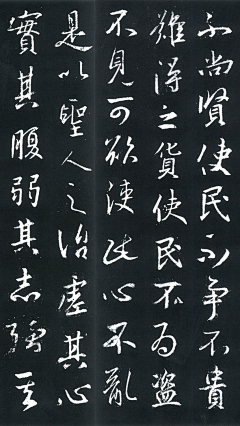 不尚賢使民不爭不貴
難得之貨使民不為盜
不見可欲使民心不亂
是以聖人之治虛其心
實其腹弱其志強其